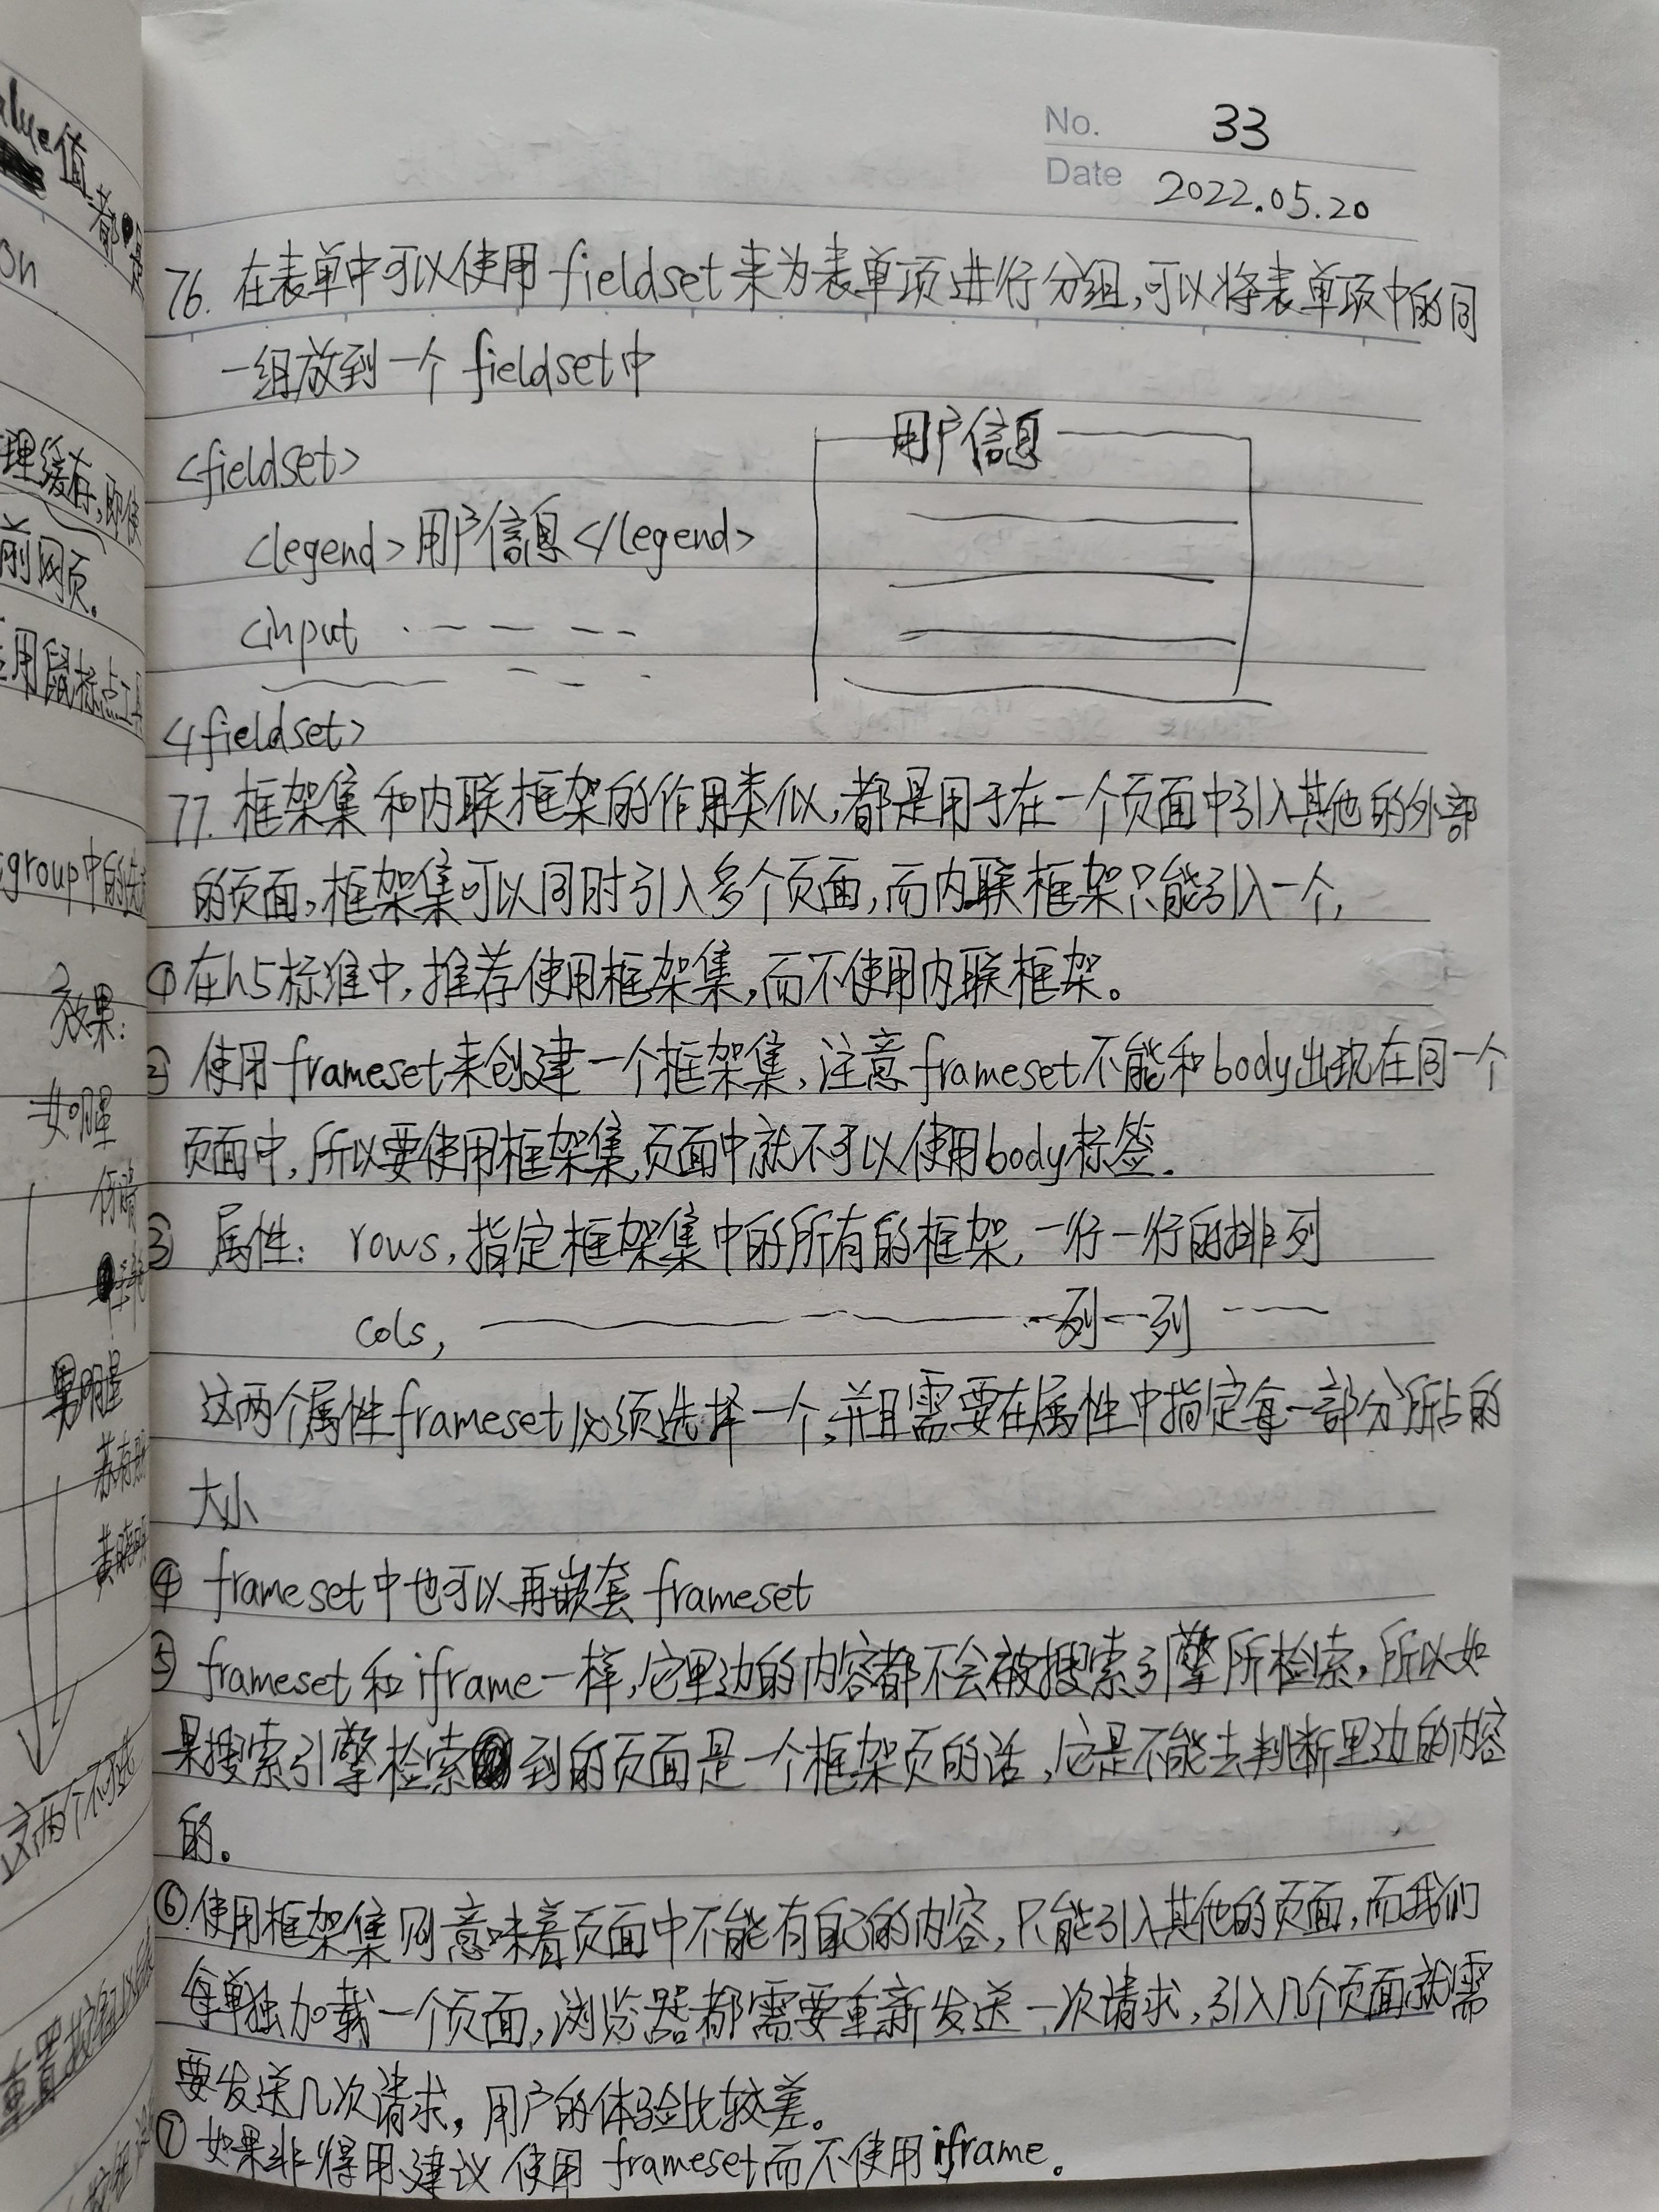 No. 33
Date 2022.05.20
76. 在表单中可以使用 fieldset来为表单项进行分组,可以将表单项中的同
一组放到一个 fieldset中
<fieldset>
用户信息
<legend>用户信息</legend>
<input
</fieldset>
77. 框架集和内联框架的作用类似,都是用于在一个页面中引入其他的外部
的页面,框架集可以同时引入多个页面,而内联框架只能引入一个,
①在h5标准中,推荐使用框架集,而不使用内联框架。
② 使用frameset来创建一个框架集,注意frameset不能和body出现在同一个
页面中,所以要使用框架集,页面中就不可以使用body标签.
③ 属性: rows,指定框架集中的所有的框架,一行一行的排列
cols, 一列一列
这两个属性frameset必须选择一个,并且需要在属性中指定每一部分所占的
大小
④ frameset中也可以再嵌套 frameset
⑤ frameset和iframe一样,它里边的内容都不会被搜索引擎所检索,所以如
果搜索引擎检索到的页面是一个框架页的话,它是不能去判断里边的内容
的。
⑥使用框架集则意味着页面中不能有自己的内容,只能引入其他的页面,而我们
每单独加载一个页面,浏览器都需要重新发送一次请求,引入几个页面就需
要发送几次请求,用户的体验比较差。
⑦ 如果非得用,建议使用 frameset而不使用iframe。
alue值都是
on
理缓存,即使
前网页。
用鼠标点工具
group中的
效果:
女明星
男明星
这两个不